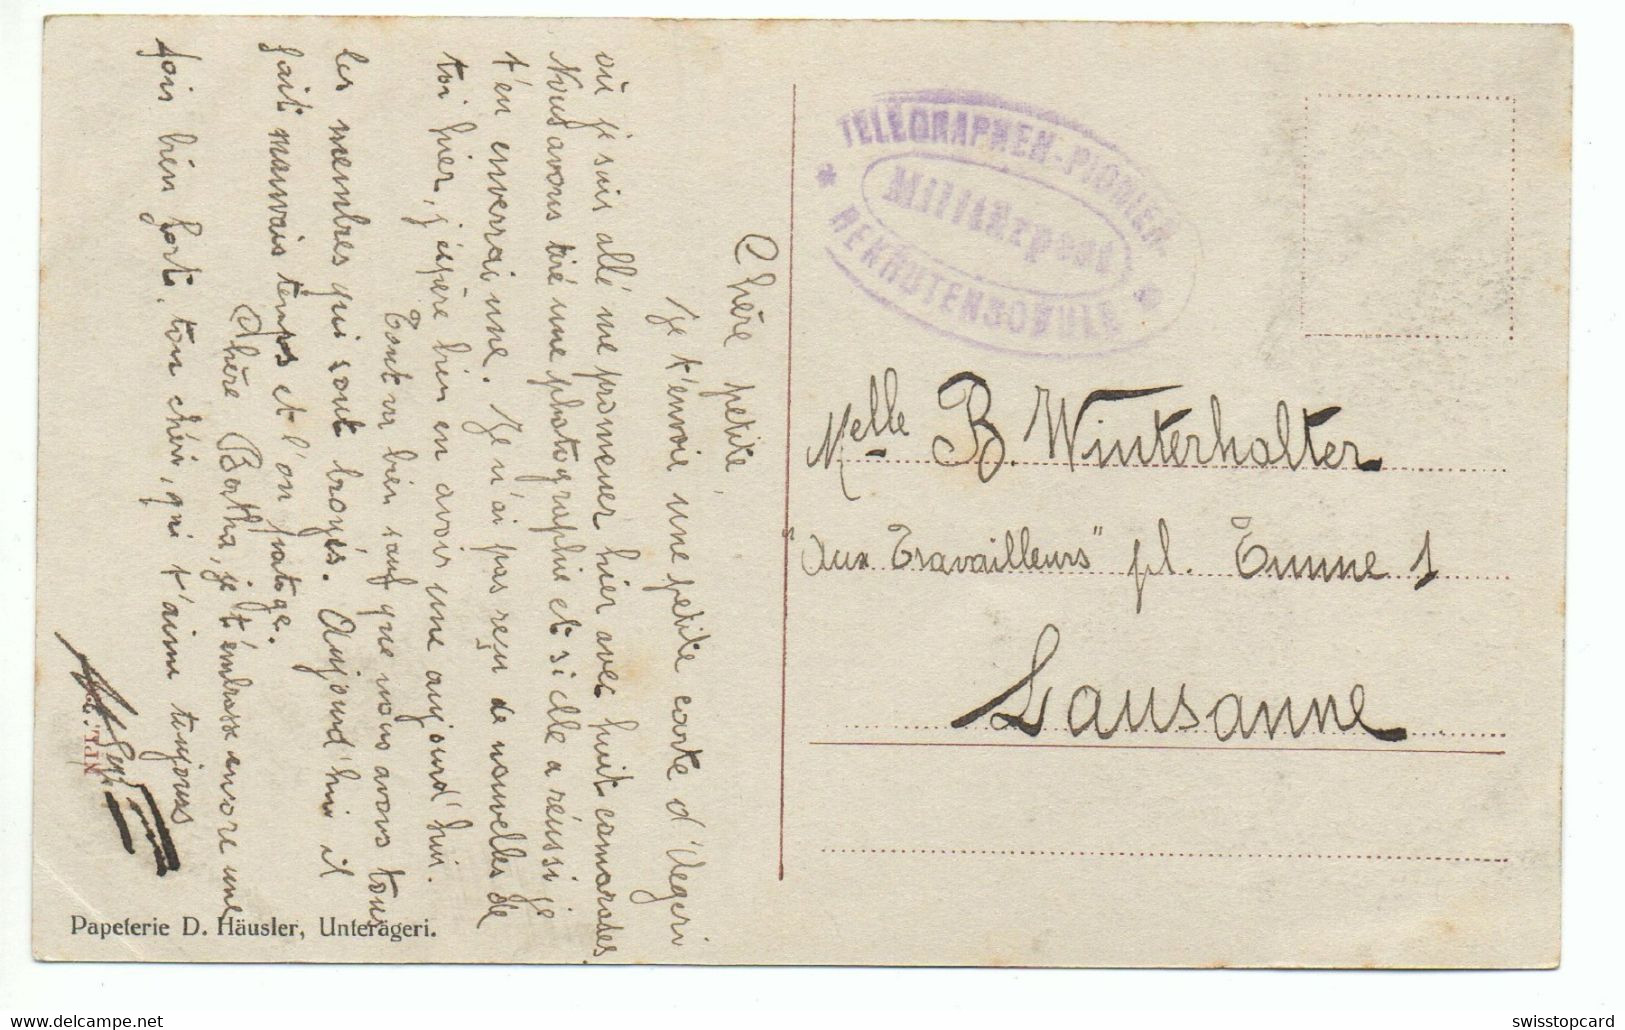 Chère petite,
Je t'envoie une petite carte d'Aegeri
où je suis allé me promener hier avec huit camarades
Nous avons tiré une photographie et si elle a réussi je
t'en enverrai une. Je n'ai pas reçu de nouvelles de
toi hier, j'éspère bien en avoir une aujourd'hui.
Tout va bien sauf que nous avons tous
les membres qui sont broyés. Aujourd'hui il
fait mauvais temps et l'on patage.
Chère Bertha, je t'embrasse encore une
fois bien fort, ton chéri, qui t'aime toujours
Papeterie D. Häusler, Unterägeri.
TELEGRAPHEN-PIONIER-
Militärpost
REKRUTENSCHULE
Melle B. Winterhalter
"Aux Travailleurs" pl. Tunne 1
Lausanne
swisstopcard